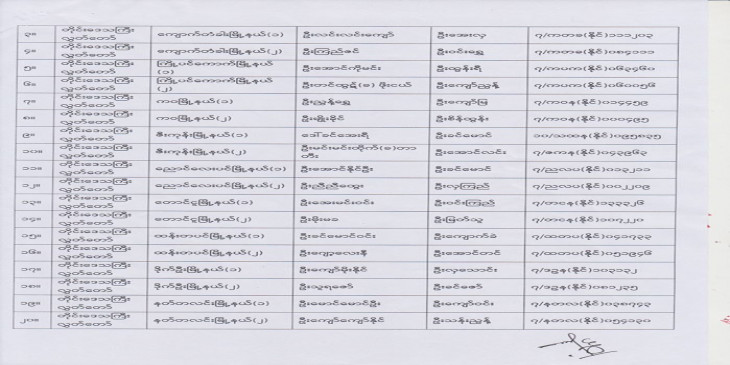 ၃။ တိုင်းဒေသကြီး လွှတ်တော် ကျောက်တံခါးမြို့နယ်(၁) ဦးလင်းလင်းကျော် ဦးအေးလှ ၇/ကတခ(နိုင်)၁၁၁၂၀၃
၄။ တိုင်းဒေသကြီး လွှတ်တော် ကျောက်တံခါးမြို့နယ်(၂) ဦးကြည်ခင် ဦးဝင်းရွှေ ၇/ကတခ(နိုင်)၀၈၄၁၁၁
၅။ တိုင်းဒေသကြီး လွှတ်တော် ကြို့ပင်ကောက်မြို့နယ် (၁) ဦးအောင်ကိုမင်း ဦးထွန်းရီ ၇/ကပက(နိုင်)၀၆၃၄၆၀
၆။ တိုင်းဒေသကြီး လွှတ်တော် ကြို့ပင်ကောက်မြို့နယ် (၂) ဦးကျော်ညွန့် ၇/ကပက(နိုင်)၀၆၀၀၅၆
၇။ တိုင်းဒေသကြီး လွှတ်တော် ကဝမြို့နယ်(၁) ဦးညွန့်ရွှေ ဦးကျော်မြ ၇/ကဝန(နိုင်)၀၁၄၄၅၉
၈။ တိုင်းဒေသကြီး လွှတ်တော် ကဝမြို့နယ်(၂) ဦးမျိုးမိုင် ဦးစိန်ထွန်း ၇/ကဝန(နိုင်)၀၀၀၄၉၅
၉။ တိုင်းဒေသကြီး လွှတ်တော် ဇီးကုန်းမြို့နယ်(၁) ဒေါ်ခင်အေးရီ ဦးခင်မောင် ၁၀/သထန(နိုင်)၀၉၅၈၃၅
၁၀။ တိုင်းဒေသကြီး လွှတ်တော် ဇီးကုန်းမြို့နယ်(၂) ဦးမင်းမင်းထိုက်(ခ)တာ တီး ဦးအောင်လင်း ၇/ဇကန(နိုင်)၀၄၃၉၆၃
၁၁။ တိုင်းဒေသကြီး လွှတ်တော် ညောင်လေးပင်မြို့နယ်(၁) ဦးအောင်နိုင်ဦး ဦးခင်မောင် ၇/ညလပ(နိုင်)၀၁၃၂၁၁
၁၂။ တိုင်းဒေသကြီး လွှတ်တော် ညောင်လေးပင်မြို့နယ်(၂) ဦးညီညီထွေး ဦးလှကြည် ၇/ညလပ(နိုင်)၀၀၂၂၀၉
၁၃။ တိုင်းဒေသကြီး လွှတ်တော် တောင်ငူမြို့နယ်(၁) ဦးအေးမင်းဝင်း ဦးဝင်းကြည် ၇/တငန(နိုင်)၁၃၃၃၂၆
၁၄။ တိုင်းဒေသကြီး လွှတ်တော် တောင်ငူမြို့နယ်(၂) ဦးမိုးမခ ဦးမြတ်သူ ၇/တငန(နိုင်)၀၀၇၂၂၀
၁၅။ တိုင်းဒေသကြီး လွှတ်တော် ထန်းတပင်မြို့နယ်(၁) ဦးခင်မောင်ဝင်း ဦးကျောက်ခဲ ၇/ထတပ(နိုင်)၀၄၁၇၃၃
၁၆။ တိုင်းဒေသကြီး လွှတ်တော် ထန်းတပင်မြို့နယ်(၂) ဦးကျော့လေးနီ ဦးအောင်တင် ၇/ထတပ(နိုင်)၀၅၁၉၄၆
၁၇။ တိုင်းဒေသကြီး လွှတ်တော် ဒိုက်ဦးမြို့နယ်(၁) ဦးကျော်မိုးနိုင် ဦးလှသောင်း ၇/ဒဥန(နိုင်)၁၁၃၁၃၂
၁၈။ တိုင်းဒေသကြီး လွှတ်တော် ဒိုက်ဦးမြို့နယ်(၂) ဦးသူရဇော် ဦးခင်ဇော် ၇/ဒဥန(နိုင်)၀၈၁၂၃၅
၁၉။ တိုင်းဒေသကြီး လွှတ်တော် နတ်တလင်းမြို့နယ်(၁) ဦးမောင်မောင်ဦး ဦးကျော်ဝင်း ၇/နတလ(နိုင်)၀၃၈၇၄၃
၂၀။ တိုင်းဒေသကြီး လွှတ်တော် နတ်တလင်းမြို့နယ်(၂) ဦးကျော်ကျော်နိုင် ဦးသန်းညွန့် ၇/နတလ(နိုင်)၀၅၄၁၃၀